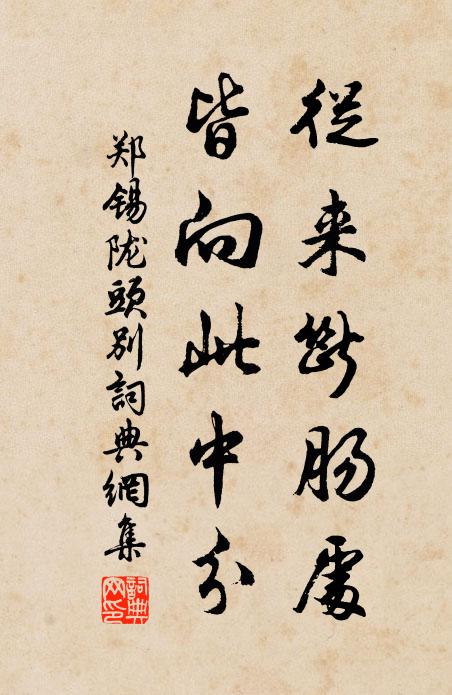 從来斷肠處
皆向此中分
郑锡陇頭别詞典網集
詞典
网印